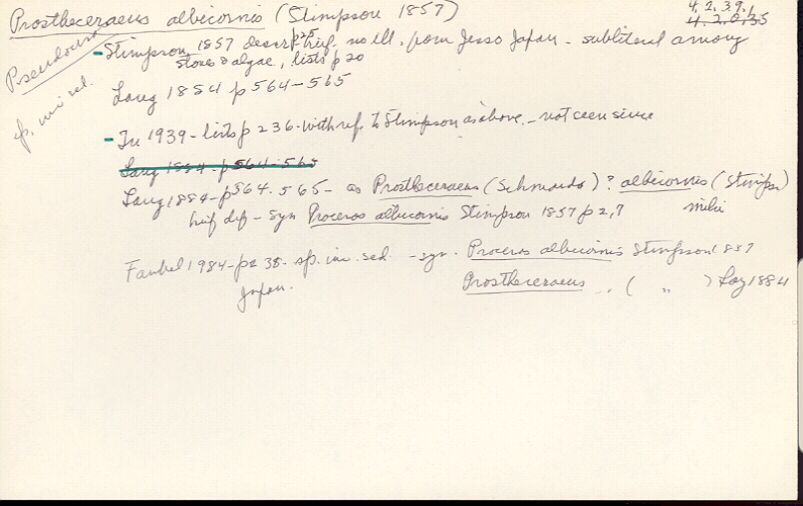 Prostheceraeus albicornis (Stimpson 1857)
4.2.39.1
4.2.0.35
Pseudoceros
sp. inc. sed.
- Stimpson 1857 descr p25 brief, no ill. from Jesso Japan - sublitoral among
stones & algae, lists p 20
Lang 1884 p 564-565
- In 1939 - lists p 236 - with ref. to Stimpson as above - not seen since
Lang 1884 - p 564-565
Lang 1884 - p 564-565 - as Prostheceraeus (Schmarda)? albicornis (Stimps)
brief def - syn Proceros albicornis Stimpson 1857 p 2,7
Faubel 1984 - p 238 - sp. inc. sed. - syn. Proceros albicornis Stimpson 1857
Japan.
Prostheceraeus " ( " ) Lang 1884